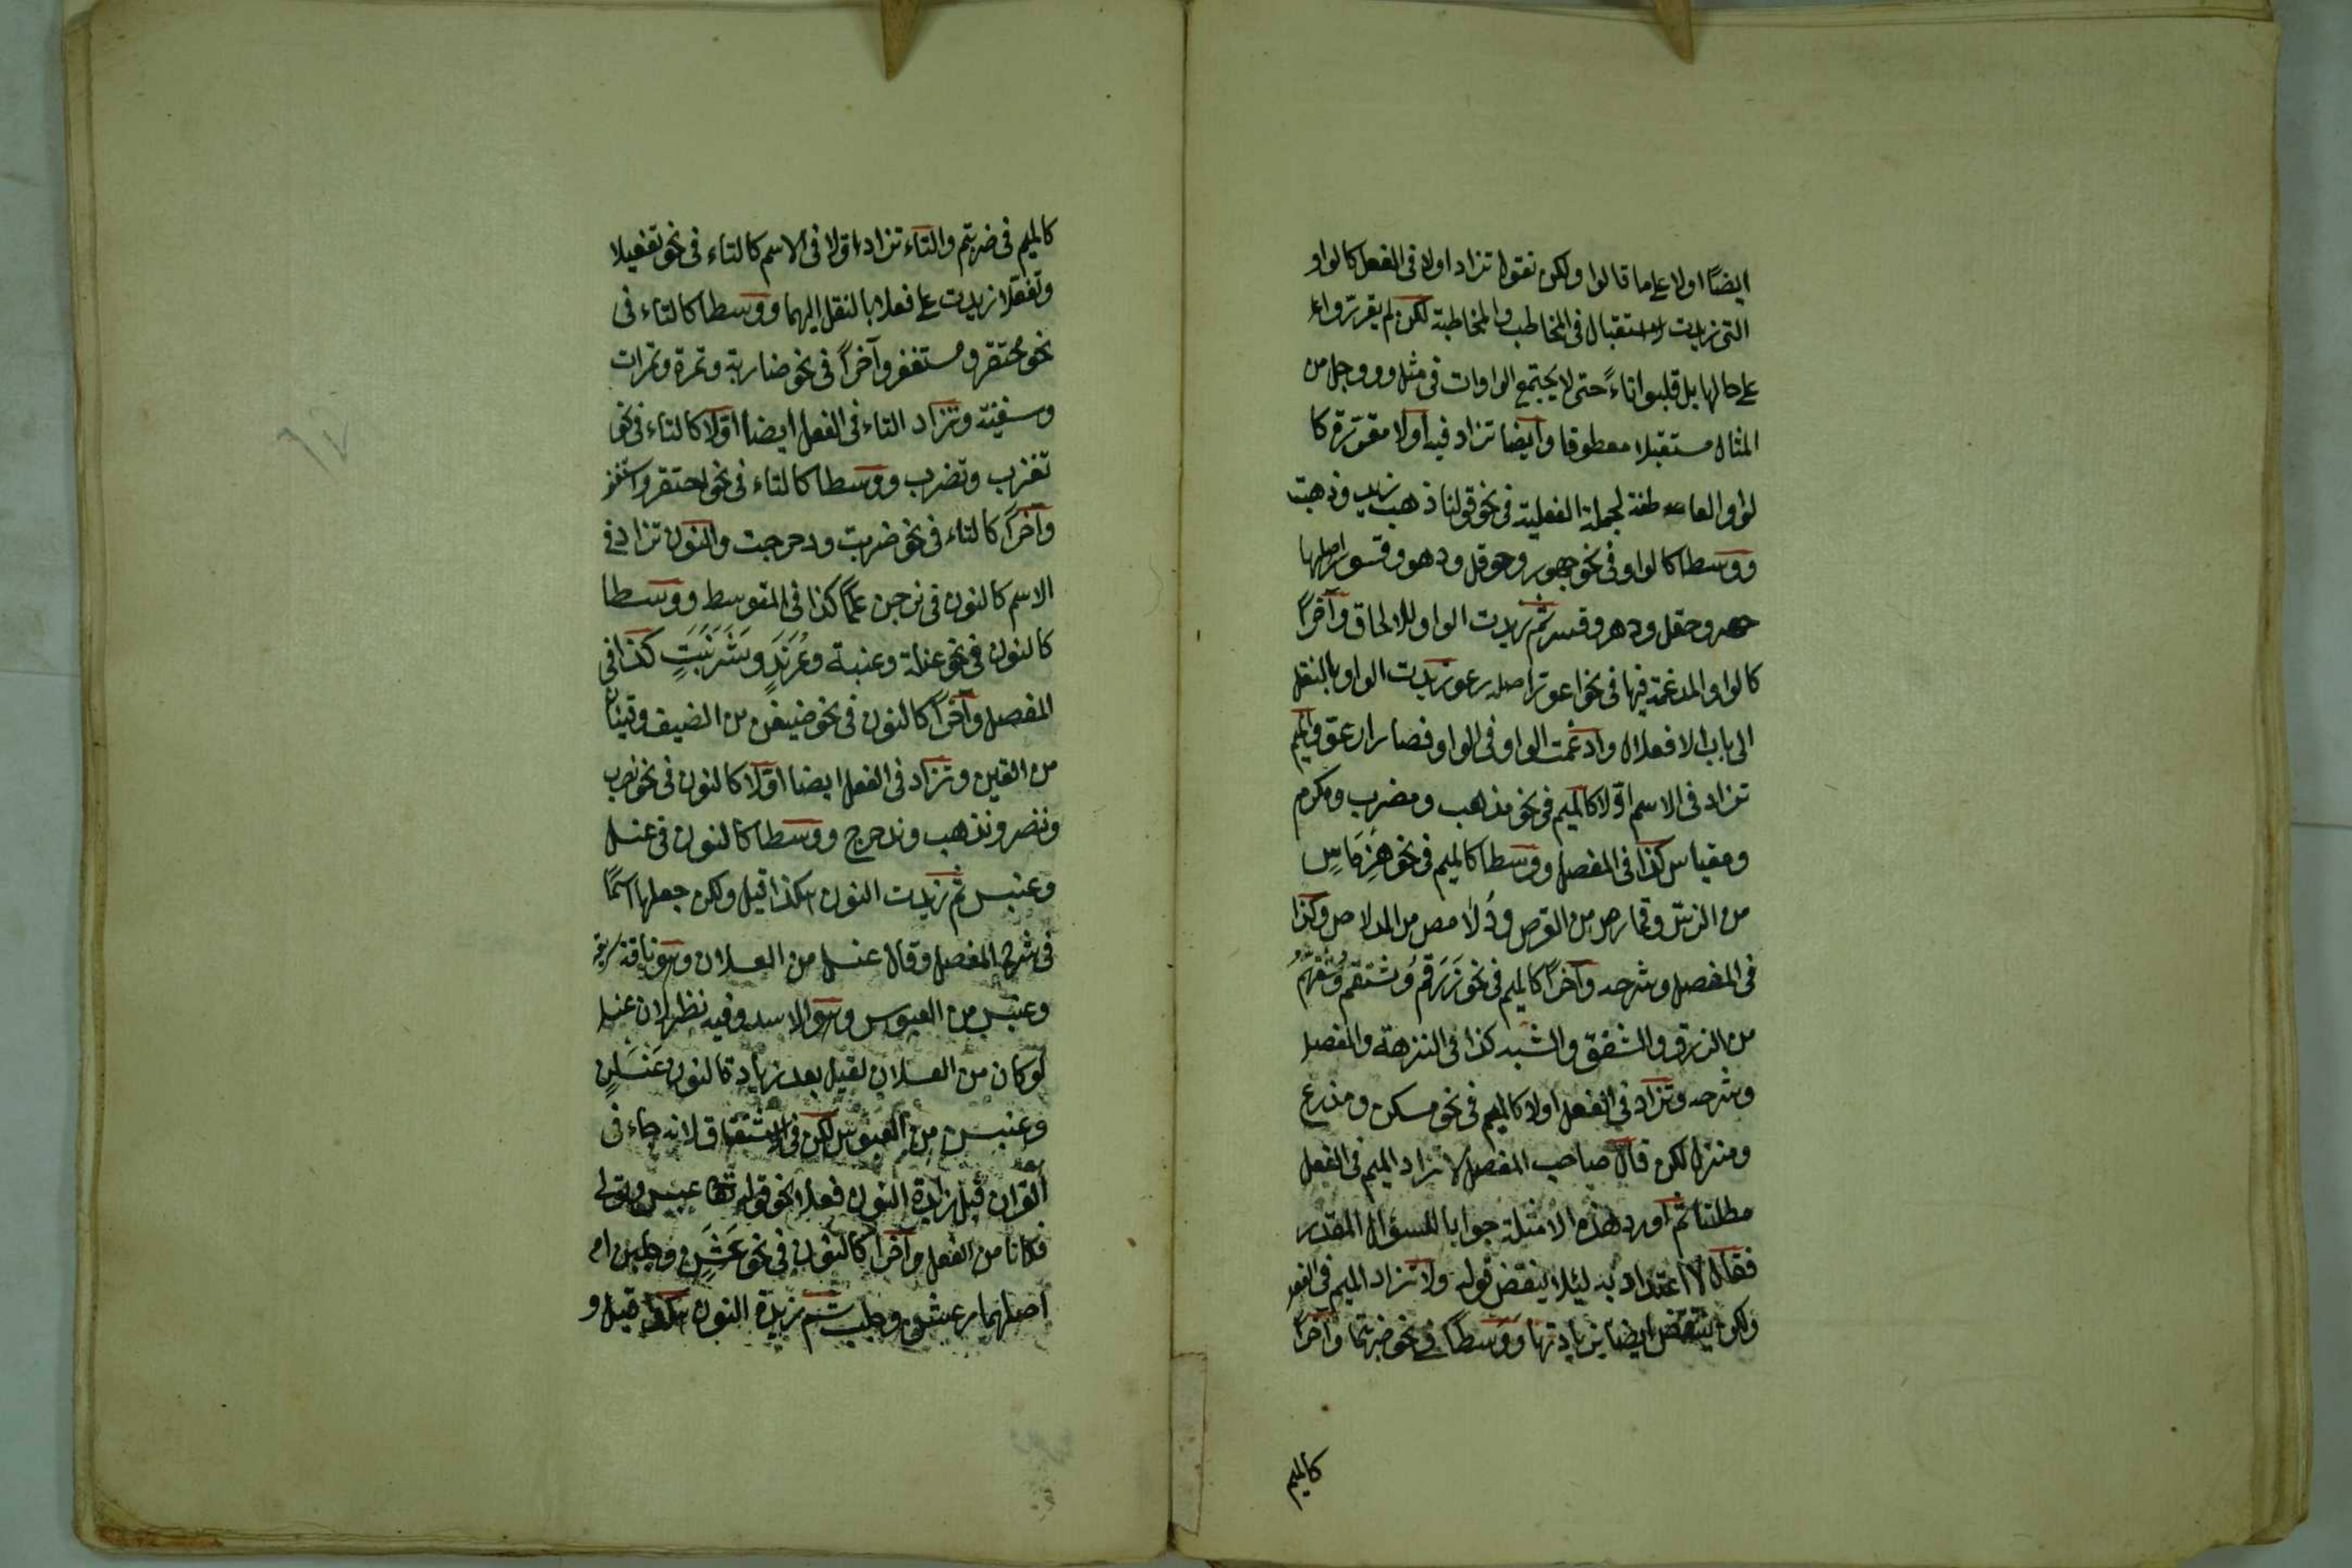 ايضًا اولا على ما قالوا ولكن نقول تزاد اولا فى الفعل كالواو
التى زيدت للاستقبال فى المخاطب والمخاطبة لكن لم يقرّروا
على حالها بل قلبوا تاءً حتى لا يجتمع الواوات فى مثل وووجل من
المثال مستقبلا معطوفا وايضا تزاد فيه اولا مقررة كا
لواو العاطفة لجملة الفعلية فى نحو قولنا ذهب زيد وذهبت
ووسطا كالواو فى نحو جهور وحوقل ودهور وقسور اصلها
جهر وحقل ودهر وقسر ثم زيدت الواو للالحاق وآخرًا
كالواو المدغمة فيها فى نحو ارعوّ اصله رعو زيدت الواو بالنقل
الى باب الافعلال وادغمت الواو فى الواو فصار ارعوّ والميم
تزاد فى الاسم اوّلا كالميم فى نحو مذهب ومضرب ومكرم
ومقياس كذا فى المفصل ووسطا كالميم فى نحو هِرْمَاسٍ
من وقمارص من القرص ودُلامص من الدلاص وكذا
فى المفصل وشرحه وآخرًا كالميم فى نحو زَرْقم
من الزرق كذا فى النزهة والمفصل
وشرحه وتزاد فى الفعل اولا كالميم فى نحو مسكن ومذرع
ومنزل لكن قال صاحب المفصل لا تزاد الميم فى الفعل
مطلقا ثم اورد هذه الامثلة جوابا للسؤال المقدر
فقال لا اعتداد به ليلا ينقض قوله ولا تزاد الميم فى الفعل
ولكن ينتقض ايضا بزيادتها ووسطا فى نحو ضربتما وآخرًا
كالميم
كالميم فى ضربتم والتاء تزاد اوّلا فى الاسم كالتاء فى نحو تفعيلا
وتفعّلا زيدت على فعلا بالنقل اليهما ووسطا كالتاء فى
نحو محتقر ومستغفر وآخرًا فى نحو ضاربة وتمرة وتمرات
وسفينة وتزاد التاء فى الفعل ايضا اوّلا كالتاء فى نحو
تغرب وتضرب ووسطا كالتاء فى نحو احتقر واستغفر
وآخرًا كالتاء فى نحو ضربت ودحرجت والنون تزاد فى
الاسم كالنون فى نرجس علمًا كذا فى المتوسط ووسطا
كالنون فى نحو عنسل وعنبسة وعُرُنْدٍ وشَرَنْبَثٍ كذا فى
المفصل وآخرًا كالنون فى نحو ضيفن من الضيف وقينان
من القين وتزاد فى الفعل ايضا اوّلا كالنون فى نحو نضرب
وننصر ونذهب وندحرج ووسطا كالنون فى عنسل
وعنبس ثم زيدت النون هكذا قيل ولكن جعلها اسمًا
فى شرح المفصل وقال عنسل من العسلان وهو ناقة سريعة
وعنبس من العبوس وهو الاسد وفيه نظر لان عنسل
لو كان من العسلان لقيل بعد زيادة النون عَنْسَلَنٍ
وعنبس من العبوس لكن فى الاشتقاق لانه جاء فى
القرآن قبل زيادة النون فعلا نحو قوله تعالى عبس وتولى
فكانا من الفعل وآخرًا كالنون فى نحو رَعْشَنٍ وخلبن
اصلهما رعش وخلب ثم زيدت النون هكذا قيل و